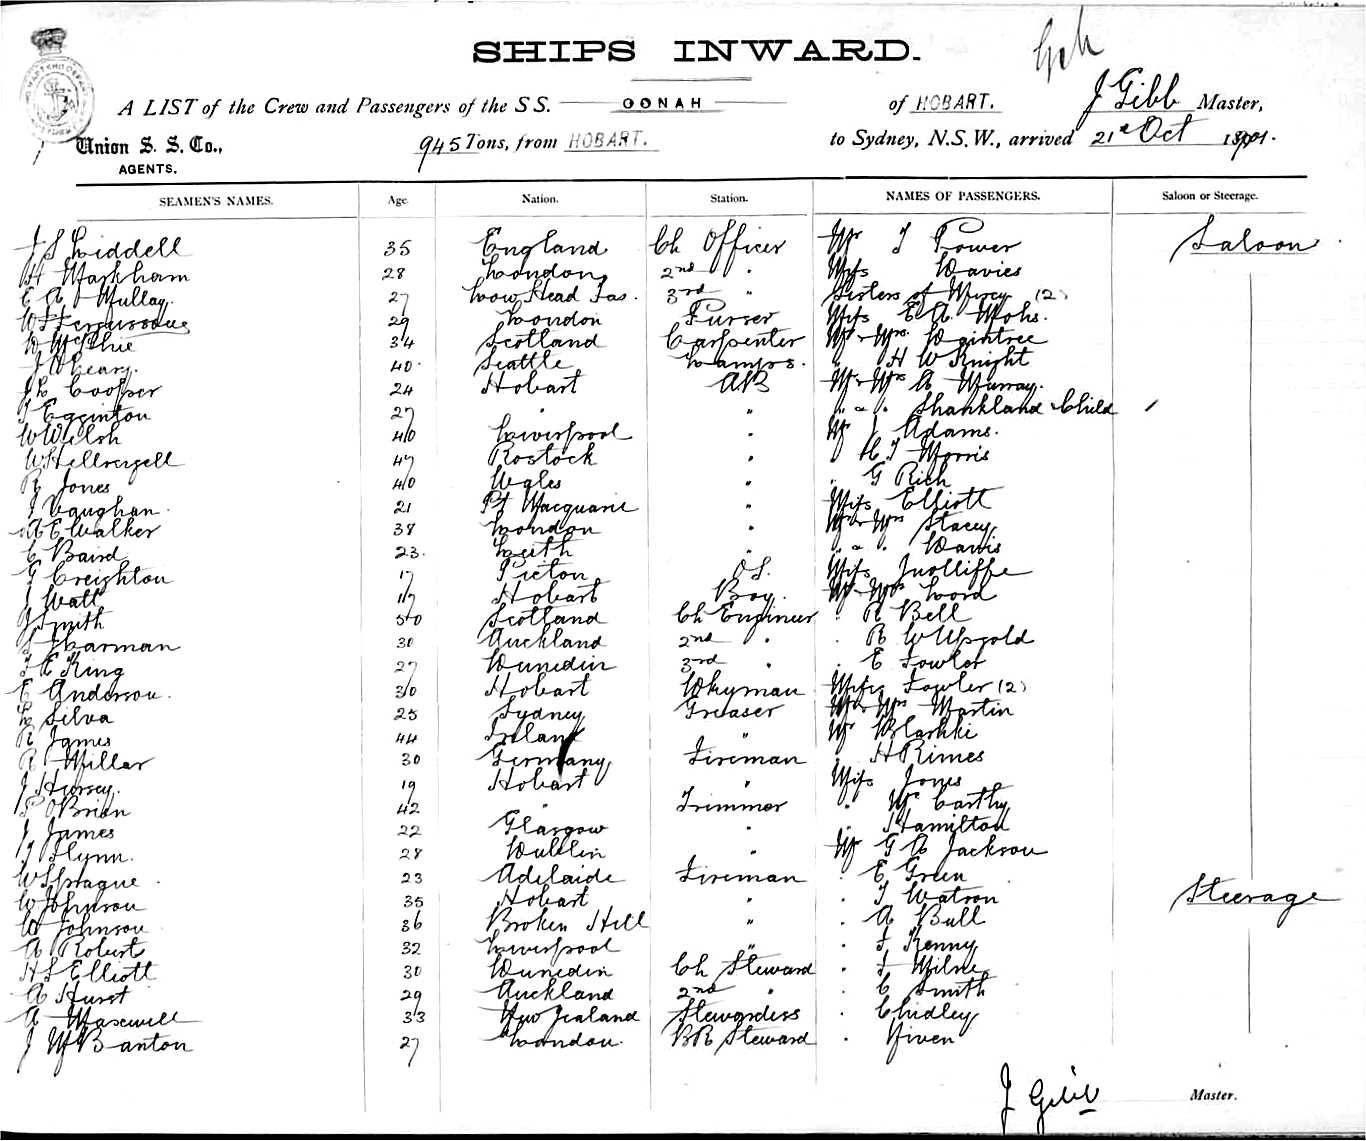 SHIPS INWARD.
A LIST of the Crew and Passengers of the SS. OONAH of HOBART. J Gibb Master,
Union S. S. Co., AGENTS. 945 Tons, from HOBART. to Sydney, N.S.W., arrived 21st Oct 1901.
SEAMEN'S NAMES. Age. Nation. Station. NAMES OF PASSENGERS. Saloon or Steerage.
J S Liddell 35 England Ch Officer Mr T Power Saloon
H Markham 28 London 2nd " Miss Davies
E A Mullay. 27 Low Head Tas. 3rd " Sisters of Mercy (2)
W Fergussone 29 London Purser Miss E A Mohs.
34 Scotland Carpenter Mr Mrs Daintree
J W Geary. 40. Seattle Lamps. " H W Knight
J L Cooper 24 Hobart AB Mr Mrs A Murray.
T Egginton 27 " " " " " Shankland & Child
W Welsh 40 Liverpool " Mr J Adams.
47 Rostock " " H T Morris
R Jones 40 Wales " . G Rich
J Vaughan. 21 Pt Macquarie " Miss Elliott
A E Walker 38 London " Mr & Mrs Stacey
C Baird 23. Leith " " & " Davis
G Creighton 17 Picton OS. Miss Jnolliffe
J Watt 17 Hobart Boy. Mr Mrs Lord
J Smith 50 Scotland Ch Engineer . R Bell
Harman 30 Auckland 2nd " . R W Upsold
E King 27 Dunedin 3rd " . E Fowler
E Anderson. 30 Hobart Dkyman Misses Fowler (2)
L Silva 25 Sydney Greaser Mr & Mrs Martin
R James 44 Ireland " Mr Blashki
R Millar 30 Germany Fireman . H Rimes
J Hursey. 19 Hobart " Miss Jones
P O'Brien 42 " Trimmer " McCarthy
J James 22 Glasgow " . Hamilton
J Flynn. 28 Dublin " Mr G A Jackson
W Sprague. 23 Adelaide Fireman . E Green
W Johnson 35 Hobart " . T Watson Steerage
W Johnson 36 Broken Hill " . A Bull
A Robert 32 Liverpool " . J Kenny
H S Elliott 30 Dunedin Ch Steward . J Milne
A Hurst 29 Auckland 2nd " . C Smith
A Maxwell 33 New Zealand Stewardess . Chidley
J McBanton 27 London. BR Steward . Niven
J Gibb Master.